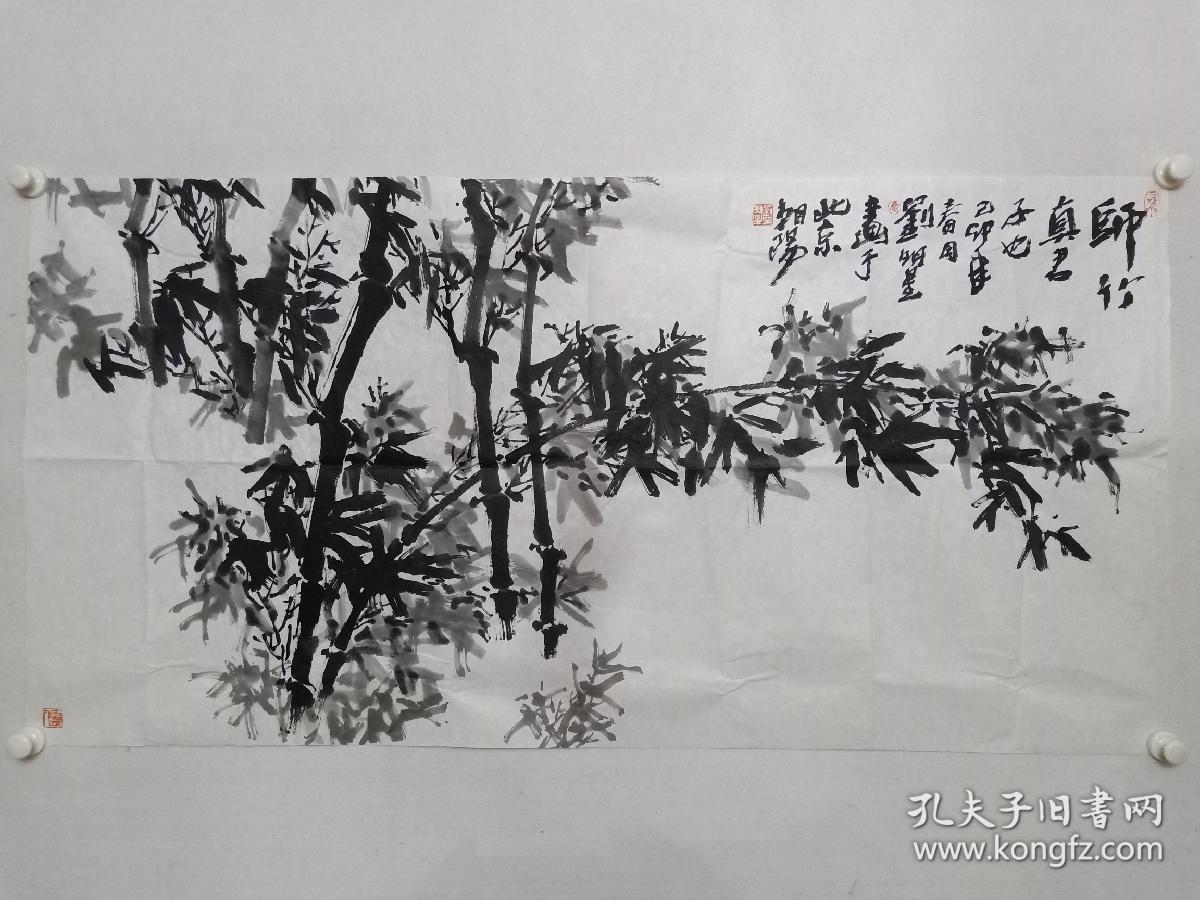 師竹
真君
子也
己卯年
春月
劉明星
畫于
北京
朝陽
孔夫子旧书网
www.kongfz.com